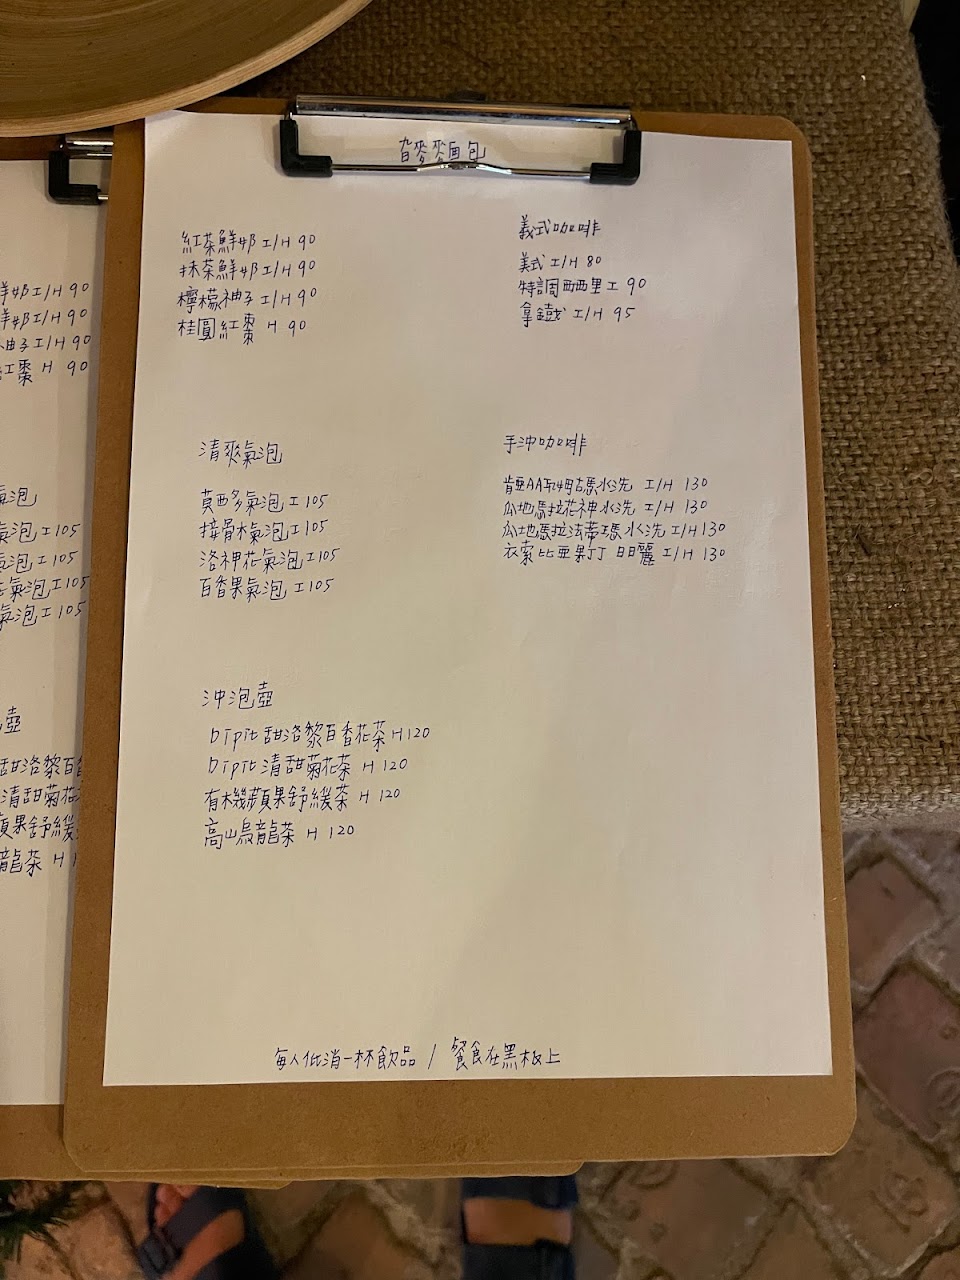 麥麵包
紅茶鮮奶 I/H 90
抹茶鮮奶 I/H 90
檸檬柚子 I/H 90
桂圓紅棗 H 90
清爽氣泡
莫西多氣泡 I 105
接骨木氣泡 I 105
洛神花氣泡 I 105
百香果氣泡 I 105
沖泡壺
Dipit 甜洛黎百香花茶 H 120
Dipit 清甜菊花茶 H 120
有機蘋果舒緩茶 H 120
高山烏龍茶 H 120
義式咖啡
美式 I/H 80
特調西西里 I 90
拿鐵 I/H 95
手沖咖啡
肯亞AA 水洗 I/H 130
瓜地馬拉花神水洗 I/H 130
瓜地馬拉法蒂瑪水洗 I/H 130
衣索比亞果丁丁日曬 I/H 130
每人低消一杯飲品 / 餐食在黑板上
鮮奶 I/H 90
鮮奶 I/H 90
柚子 I/H 90
紅棗 H 90
氣泡
氣泡 I 105
氣泡 I 105
氣泡 I 105
氣泡 I 105
壺
甜洛黎百香
清甜菊花
蘋果舒緩
龍茶 H 1